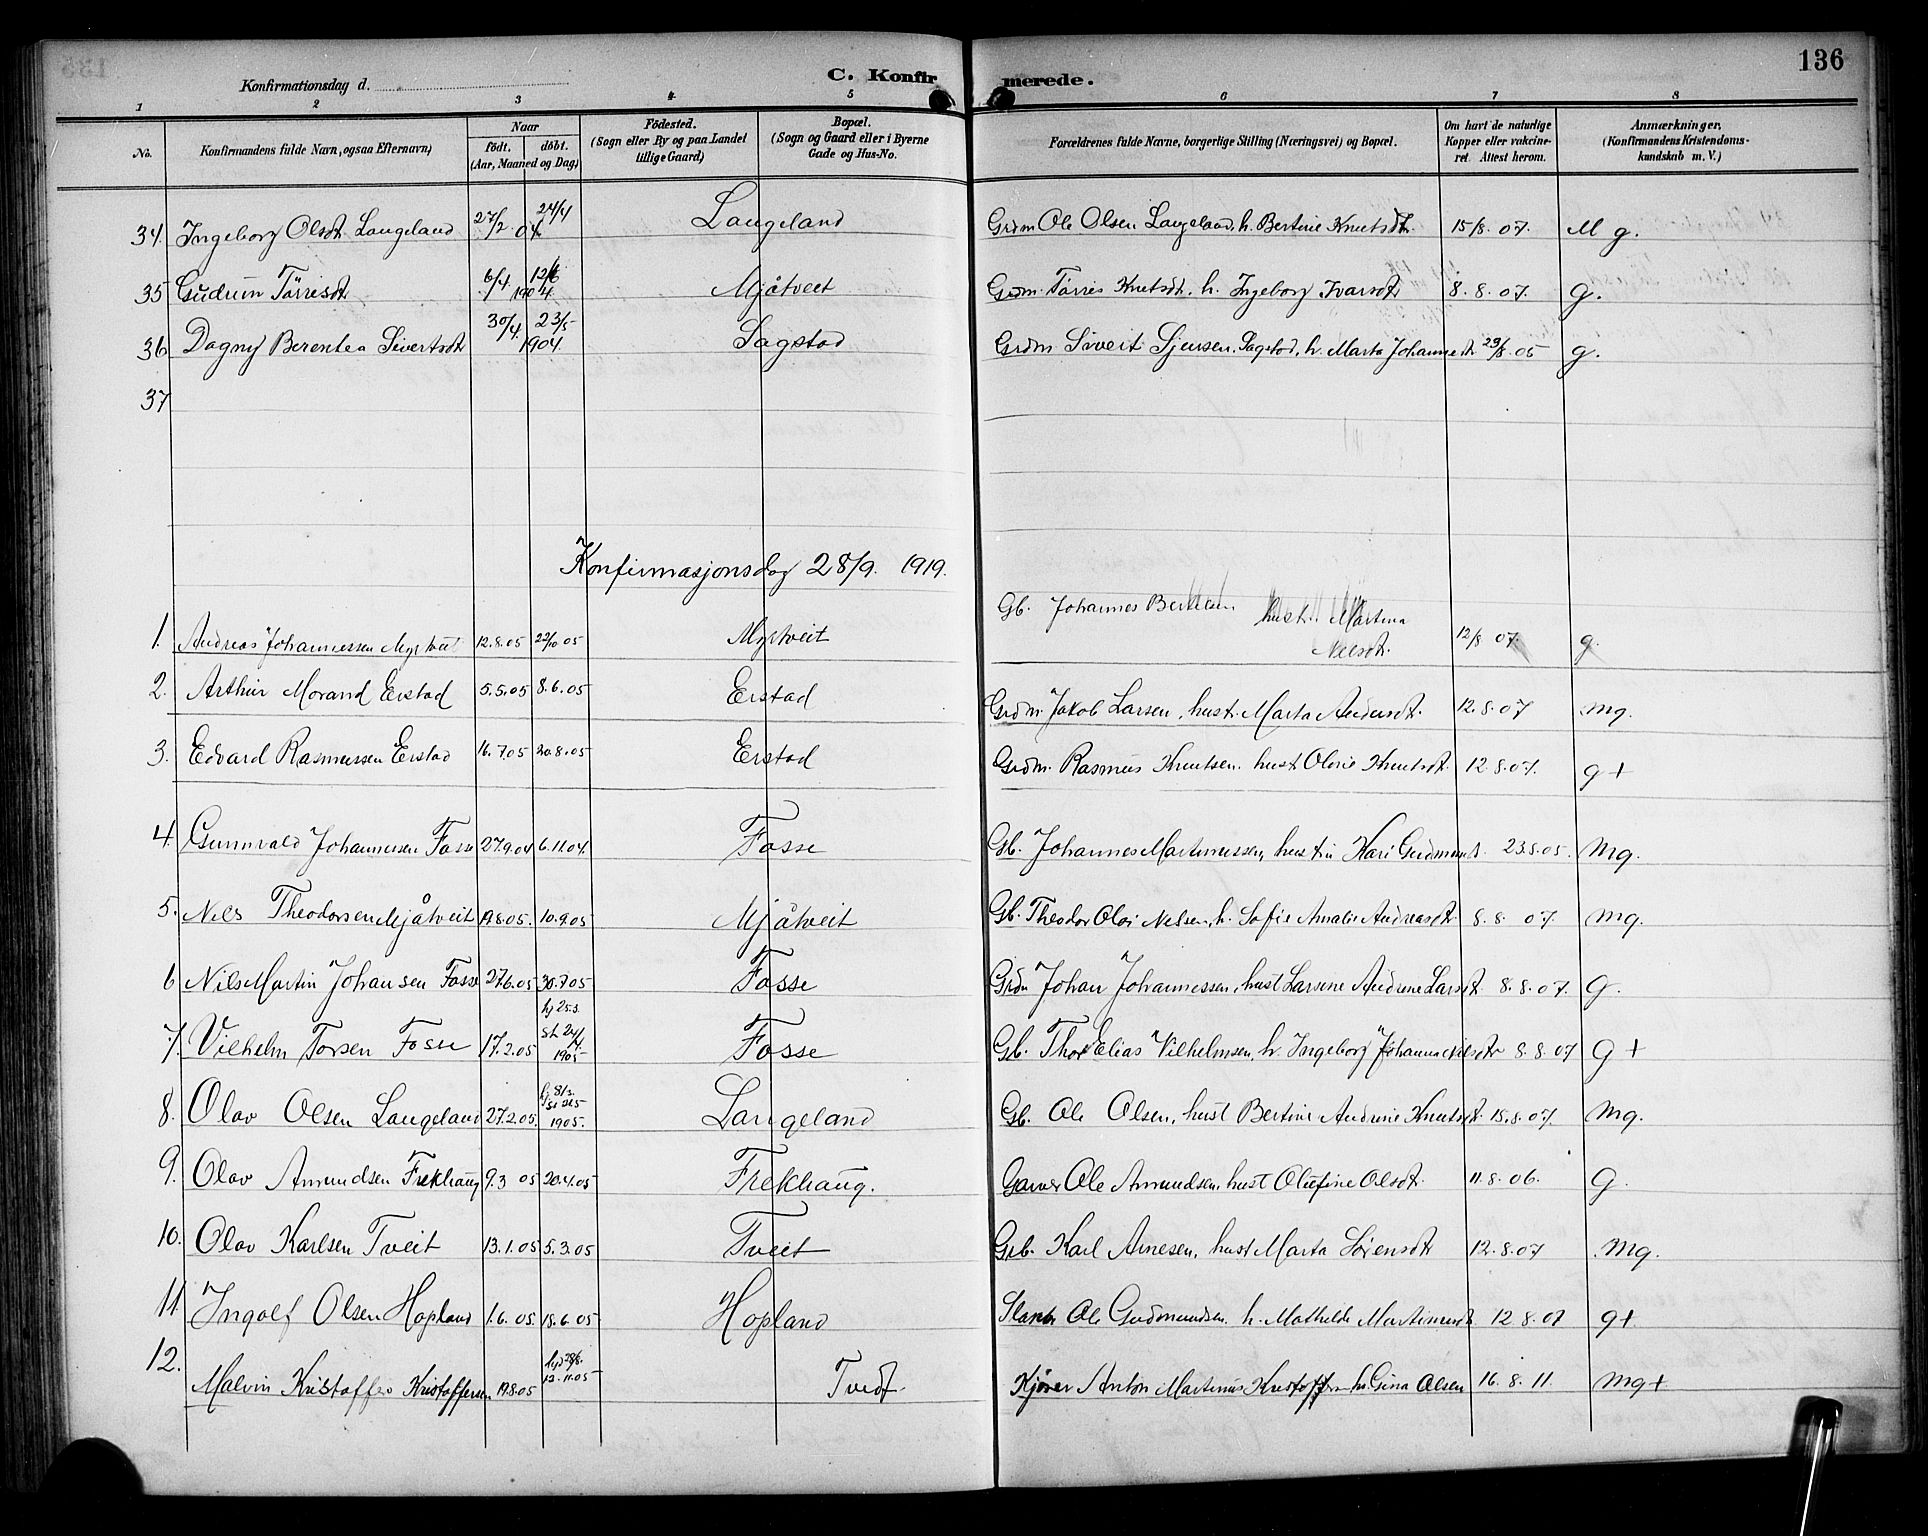 136
Konfirmationsdag d.
C. Konfirmerede.
1 2 3 4 5 6 7 8
No. Konfirmandens fulde Navn, ogsaa Efternavn) Naar født. døbt. (Aar, Maaned og Dag) Fødested. (Sogn eller By og paa Landet tillige Gaard) Bopæl. (Sogn og Gaard eller i Byerne Gade og Hus-No. Forældrenes fulde Navne, borgerlige Stilling (Næringsvei) og Bopæl. Om havt de naturlige Kopper eller vaccineret. Attest herom. Anmærkninger. (Konfirmandens Kristendomskundskab m. V.)
34. Ingeborg Olsdt. Langeland 27/2 04 24/4 Langeland Grdm Ole Olsen Langeland, h. Bertine Knutsdt. 15/8. 07. M g.
35 Gudrun Tørresdt 6/4 12/6 1904. Mjåtveit Grdm. Tørris Knutsdt. h. Ingeborg Ivarsdt 8. 8. 07. g.
36 Dagny Berentea Sivertsdt 30/4. 23/5 1904. Sagstad Grdm Siveit Sjursen, Sagstad, h. Marta Johannesdt 29/8. 05 g.
37
Konfirmasjonsdag 28/9. 1919.
1. Andreas Johannessen Myrtveit 12.8.05 22/10 05 Myrtveit Gb. Johannes Berntsen hust. Martina Nilsdt. 12/8 07. g.
2. Arthur Morand Erstad 5.5.05 8.6.05 Erstad Grdm. Jakob Larsen, hust. Marta Andersdt. 12.8.07 Mg.
3. Edvard Rasmussen Erstad 16.7.05 20.8.05 Erstad Grdm. Rasmus Knutsen. hust Oline Knutsdt. 12 8.07. g +
4. Gunnvald Johannessen Fosse 27.9.04 6.11.04. Fosse Gb. Johannes Martinussen, hustru Kari Gudmunds 23.8.05. Mg.
5. Nils Theodorsen Mjåtveit 19.8.05. 10.9.05 Mjåtveit Gb. Theodor Olai Nilsen, h. Sofie Amalie Andreasdt. 8. 8 07. Mg.
6 Nils Martin Johansen Fosse 27.6.05 30.7.05 Fosse Grdm Johan Johannessen, hust Larsine Andrine Larsdt. 8. 8. 07. g.
7. Vilhelm Torsen Fosse 17.2.05 hj 25.3. st 24/4. 1905 Fosse Gb. Thor Elias Vilhelmsen, h. Ingeborg Johanna Nilsdtr 8. 8. 07 g +
8. Olav Olsen Langeland 27.2.05. hj 8/3. 1905. Langeland Gb. Ole Olsen, hust Bertine Andrine Knutsdt 15.8.07. Mg.
9. Olav Amundsen Frekhaug 9.3 05 20.4.05 Frekhaug. Garver Ole Amundsen, hust Olufine Olsdt. 11. 8. 06. g.
10. Olav Karlsen Tveit 13.1.05 5.3.05 Tveit Grb. Karl Arnesen, hust Marta Sørensdt 12.8.07 Mg.
11 Ingolf Olsen Hopland 1.6.05. 18.6.05 Hopland Ole Gudmundsen. h. Mathilde Martinusdt 12 8.07 g+
12. Malvin Kristoffer Kristoffersen 19.8.05 12.11.05 Tvedt. Kjører Anton Martinus Kristoffersen h. Gina Olsen 16. 8. 11. Mg +